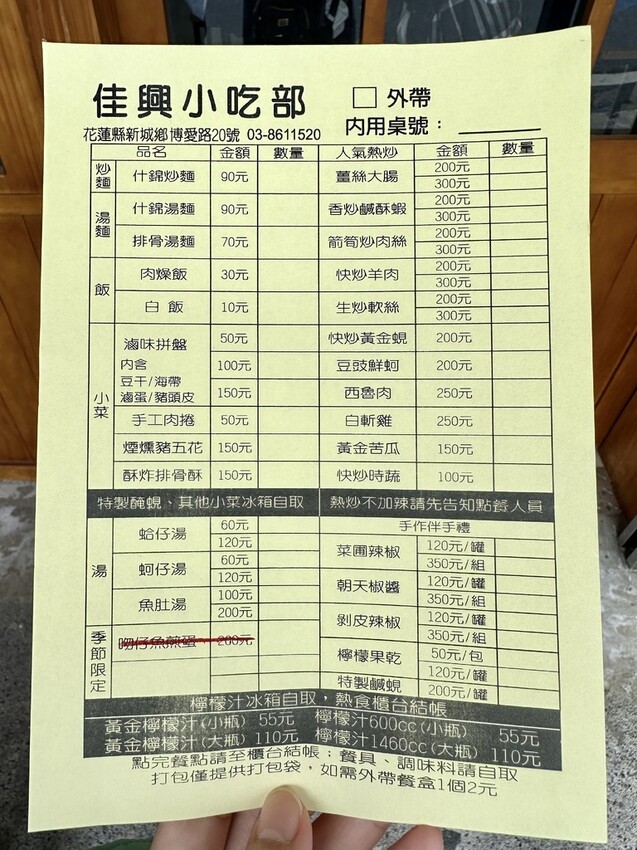 佳興小吃部
□ 外帶
花蓮縣新城鄉博愛路20號 03-8611520
內用桌號：
品名 金額 數量 人氣熱炒 金額 數量
炒麵 什錦炒麵 90元 薑絲大腸 200元 300元
湯麵 什錦湯麵 90元 香炒鹹酥蝦 200元 300元
排骨湯麵 70元 箭筍炒肉絲 200元 300元
飯 肉燥飯 30元 快炒羊肉 200元 300元
白飯 10元 生炒軟絲 200元 300元
小菜 滷味拼盤 50元 快炒黃金蜆 200元
內含 100元 豆豉鮮蚵 200元
豆干/海帶
滷蛋/豬頭皮 150元 西魯肉 250元
手工肉捲 50元 白斬雞 250元
煙燻豬五花 150元 黃金苦瓜 150元
酥炸排骨酥 150元 快炒時蔬 100元
特製醃蜆、其他小菜冰箱自取 熱炒不加辣請先告知點餐人員
湯 蛤仔湯 60元 120元
蚵仔湯 60元 120元
魚肚湯 100元 200元
季節限定 吻仔魚煎蛋 200元
手作伴手禮
菜圃辣椒 120元/罐 350元/組
朝天椒醬 120元/罐 350元/組
剝皮辣椒 120元/罐 350元/組
檸檬果乾 50元/包 120元/罐
特製鹹蜆 200元/罐
檸檬汁冰箱自取，熱食櫃台結帳
黃金檸檬汁(小瓶) 55元 檸檬汁600cc(小瓶) 55元
黃金檸檬汁(大瓶) 110元 檸檬汁1460cc(大瓶) 110元
點完餐點請至櫃台結帳；餐具、調味料請自取
打包僅提供打包袋，如需外帶餐盒1個2元